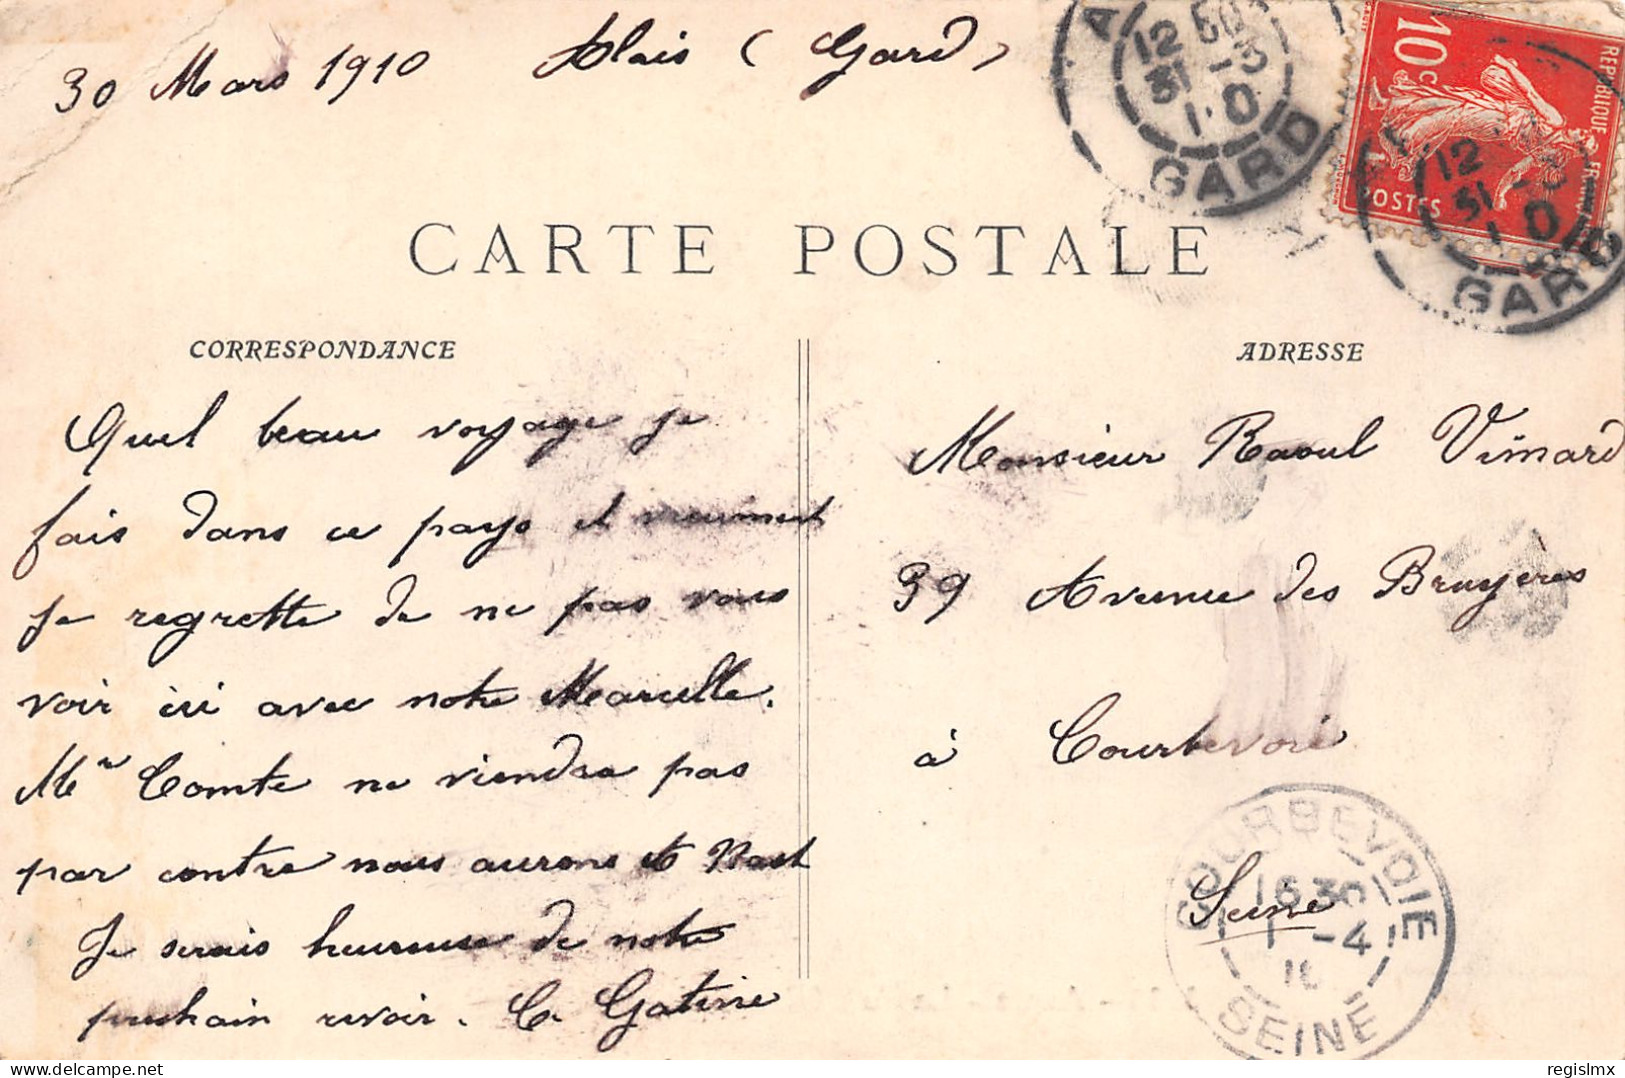 30 Mars 1910 Alais (Gard)
A
12 50
31 -3
10
GARD
10c
REPUBLIQUE FRANÇAISE
POSTES
12
31 -3
10
GARD
CARTE POSTALE
CORRESPONDANCE
ADRESSE
Quel beau voyage je
fais dans ce pays et vraiment
je regrette de ne pas vous
voir ici avec notre Marcelle.
Mr Comte ne viendra pas
par contre nous aurons
Je serais heureuse de notre
prochain revoir. C. Gatine
Monsieur Raoul Vimard
39 Avenue des Bruyères
à Courbevoie
Seine
COURBEVOIE
16 30
1 -4
10
SEINE
regislmx